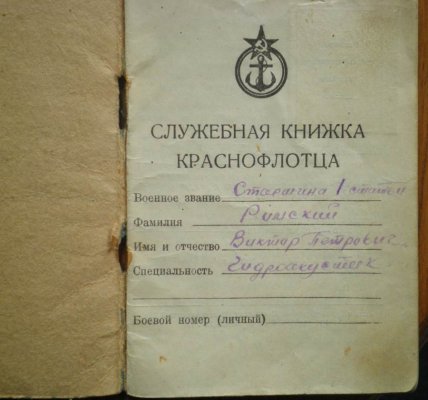 СЛУЖЕБНАЯ КНИЖКА
КРАСНОФЛОТЦА
Военное звание Старшина 1 статьи
Фамилия Римский
Имя и отчество Виктор Петрович
Специальность Гидроакустик
Боевой номер (личный)